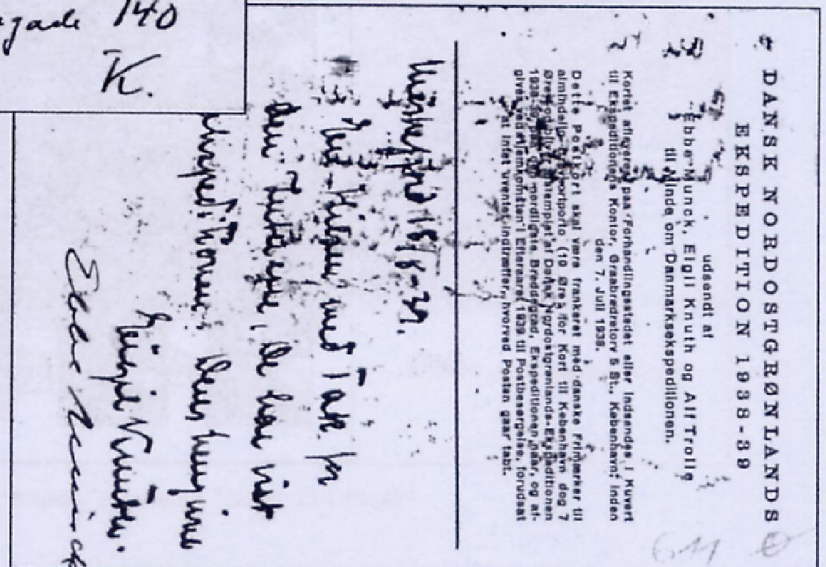 DANSK NORDOSTGRØNLANDS
EKSPEDITION 1938-39
udsendt af
Ebbe Munck, Eigil Knuth og Alf Trolle
til Minde om Danmarksekspeditionen.
Kortet afleveres paa Forhandlingsstedet eller indsendes i Kuvert
til Ekspeditionens Kontor, Graabrødretorv 5 St., København inden
den 7. Juli 1938.
Dette Postkort skal være frankeret med danske Frimærker til
almindelig (10 Øre, for Kort til København dog 7
Øre) af Dansk Nordostgrønlands-Ekspeditionen
1938 nordligste Breddegrad, Ekspeditionen naar, og af-
gives ved Hjemkomsten i Efteraaret 1939 til Postbesørgelse, forudsat
at intet uventet indtræffer, hvorved Posten gaar tabt.
8-39.
med Tak for
den Interesse, De har vist
Ekspeditionen. Deres hengivne
Eigil Knuth.
Ebbe Munck
gade 140
K.
611